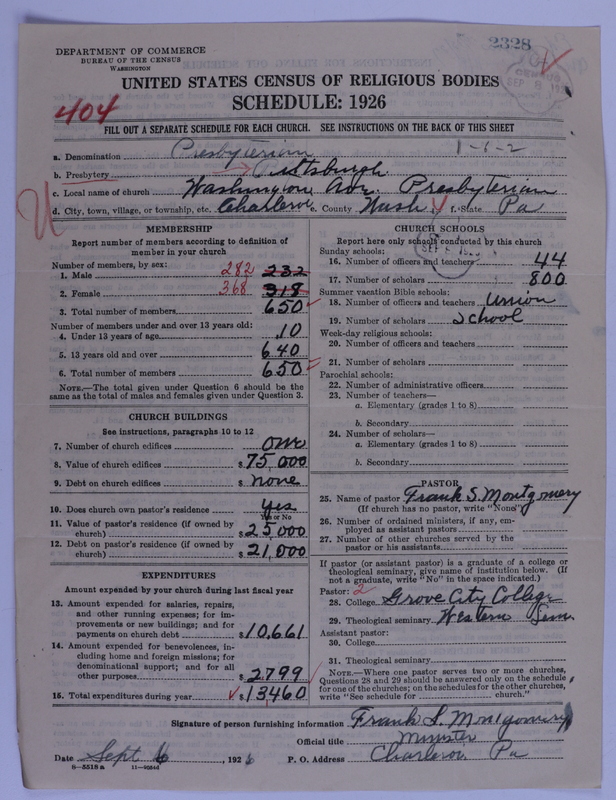 2328
DEPARTMENT OF COMMERCE
BUREAU OF THE CENSUS
WASHINGTON
UNITED STATES CENSUS OF RELIGIOUS BODIES
SCHEDULE: 1926
404
FILL OUT A SEPARATE SCHEDULE FOR EACH CHURCH. SEE INSTRUCTIONS ON THE BACK OF THIS SHEET
1-6-2
a. Denomination Presbyterian
b. Presbytery Pittsburgh
c. Local name of church Washington Ave. Presbyterian
d. City, town, village, or township, etc. Charleroi e. County Wash. f. State Pa
MEMBERSHIP
Report number of members according to definition of
member in your church
Number of members by sex:
1. Male 282 232
2. Female 368 318
3. Total number of members 650
Number of members under and over 13 years old:
4. Under 13 years of age 10
5. 13 years old and over 640
6. Total number of members 650
NOTE.—The total given under Question 6 should be the
same as the total of males and females given under Question 3.
CHURCH BUILDINGS
See instructions, paragraphs 10 to 12
7. Number of church edifices One
8. Value of church edifices $75,000
9. Debt on church edifices $ none
10. Does church own pastor's residence Yes
Yes or No
11. Value of pastor's residence (if owned by
church) $25,000
12. Debt on pastor's residence (if owned by
church) $21,000
EXPENDITURES
Amount expended by your church during last fiscal year
13. Amount expended for salaries, repairs,
and other running expenses; for im-
provements or new buildings; and for
payments on church debt $10,661
14. Amount expended for benevolences, in-
cluding home and foreign missions; for
denominational support; and for all
other purposes $2799
15. Total expenditures during year $13460
CHURCH SCHOOLS
Report here only schools conducted by this church
Sunday schools:
16. Number of officers and teachers 44
17. Number of scholars 800
Summer vacation Bible schools:
18. Number of officers and teachers Union
19. Number of scholars School
Week-day religious schools:
20. Number of officers and teachers
21. Number of scholars
Parochial schools:
22. Number of administrative officers
23. Number of teachers—
a. Elementary (grades 1 to 8)
b. Secondary
24. Number of scholars—
a. Elementary (grades 1 to 8)
b. Secondary
PASTOR
25. Name of pastor Frank S. Montgomery
(If church has no pastor, write "None")
26. Number of ordained ministers, if any, em-
ployed as assistant pastors
27. Number of other churches served by the
pastor or his assistants
If pastor (or assistant pastor) is a graduate of a college or
theological seminary, give name of institution below. (If
not a graduate, write "No" in the space indicated.)
Pastor: 2
28. College Grove City College
29. Theological seminary Western Sem
Assistant pastor:
30. College
31. Theological seminary
NOTE.—Where one pastor serves two or more churches,
Questions 28 and 29 should be answered only on the schedule
for one of the churches; on the schedules for the other churches,
write "See schedule for church."
Signature of person furnishing information Frank S. Montgomery
Official title Minister
Date Sept 6, 1926 P. O. Address Charleroi, Pa
8-5518a 11-9034d